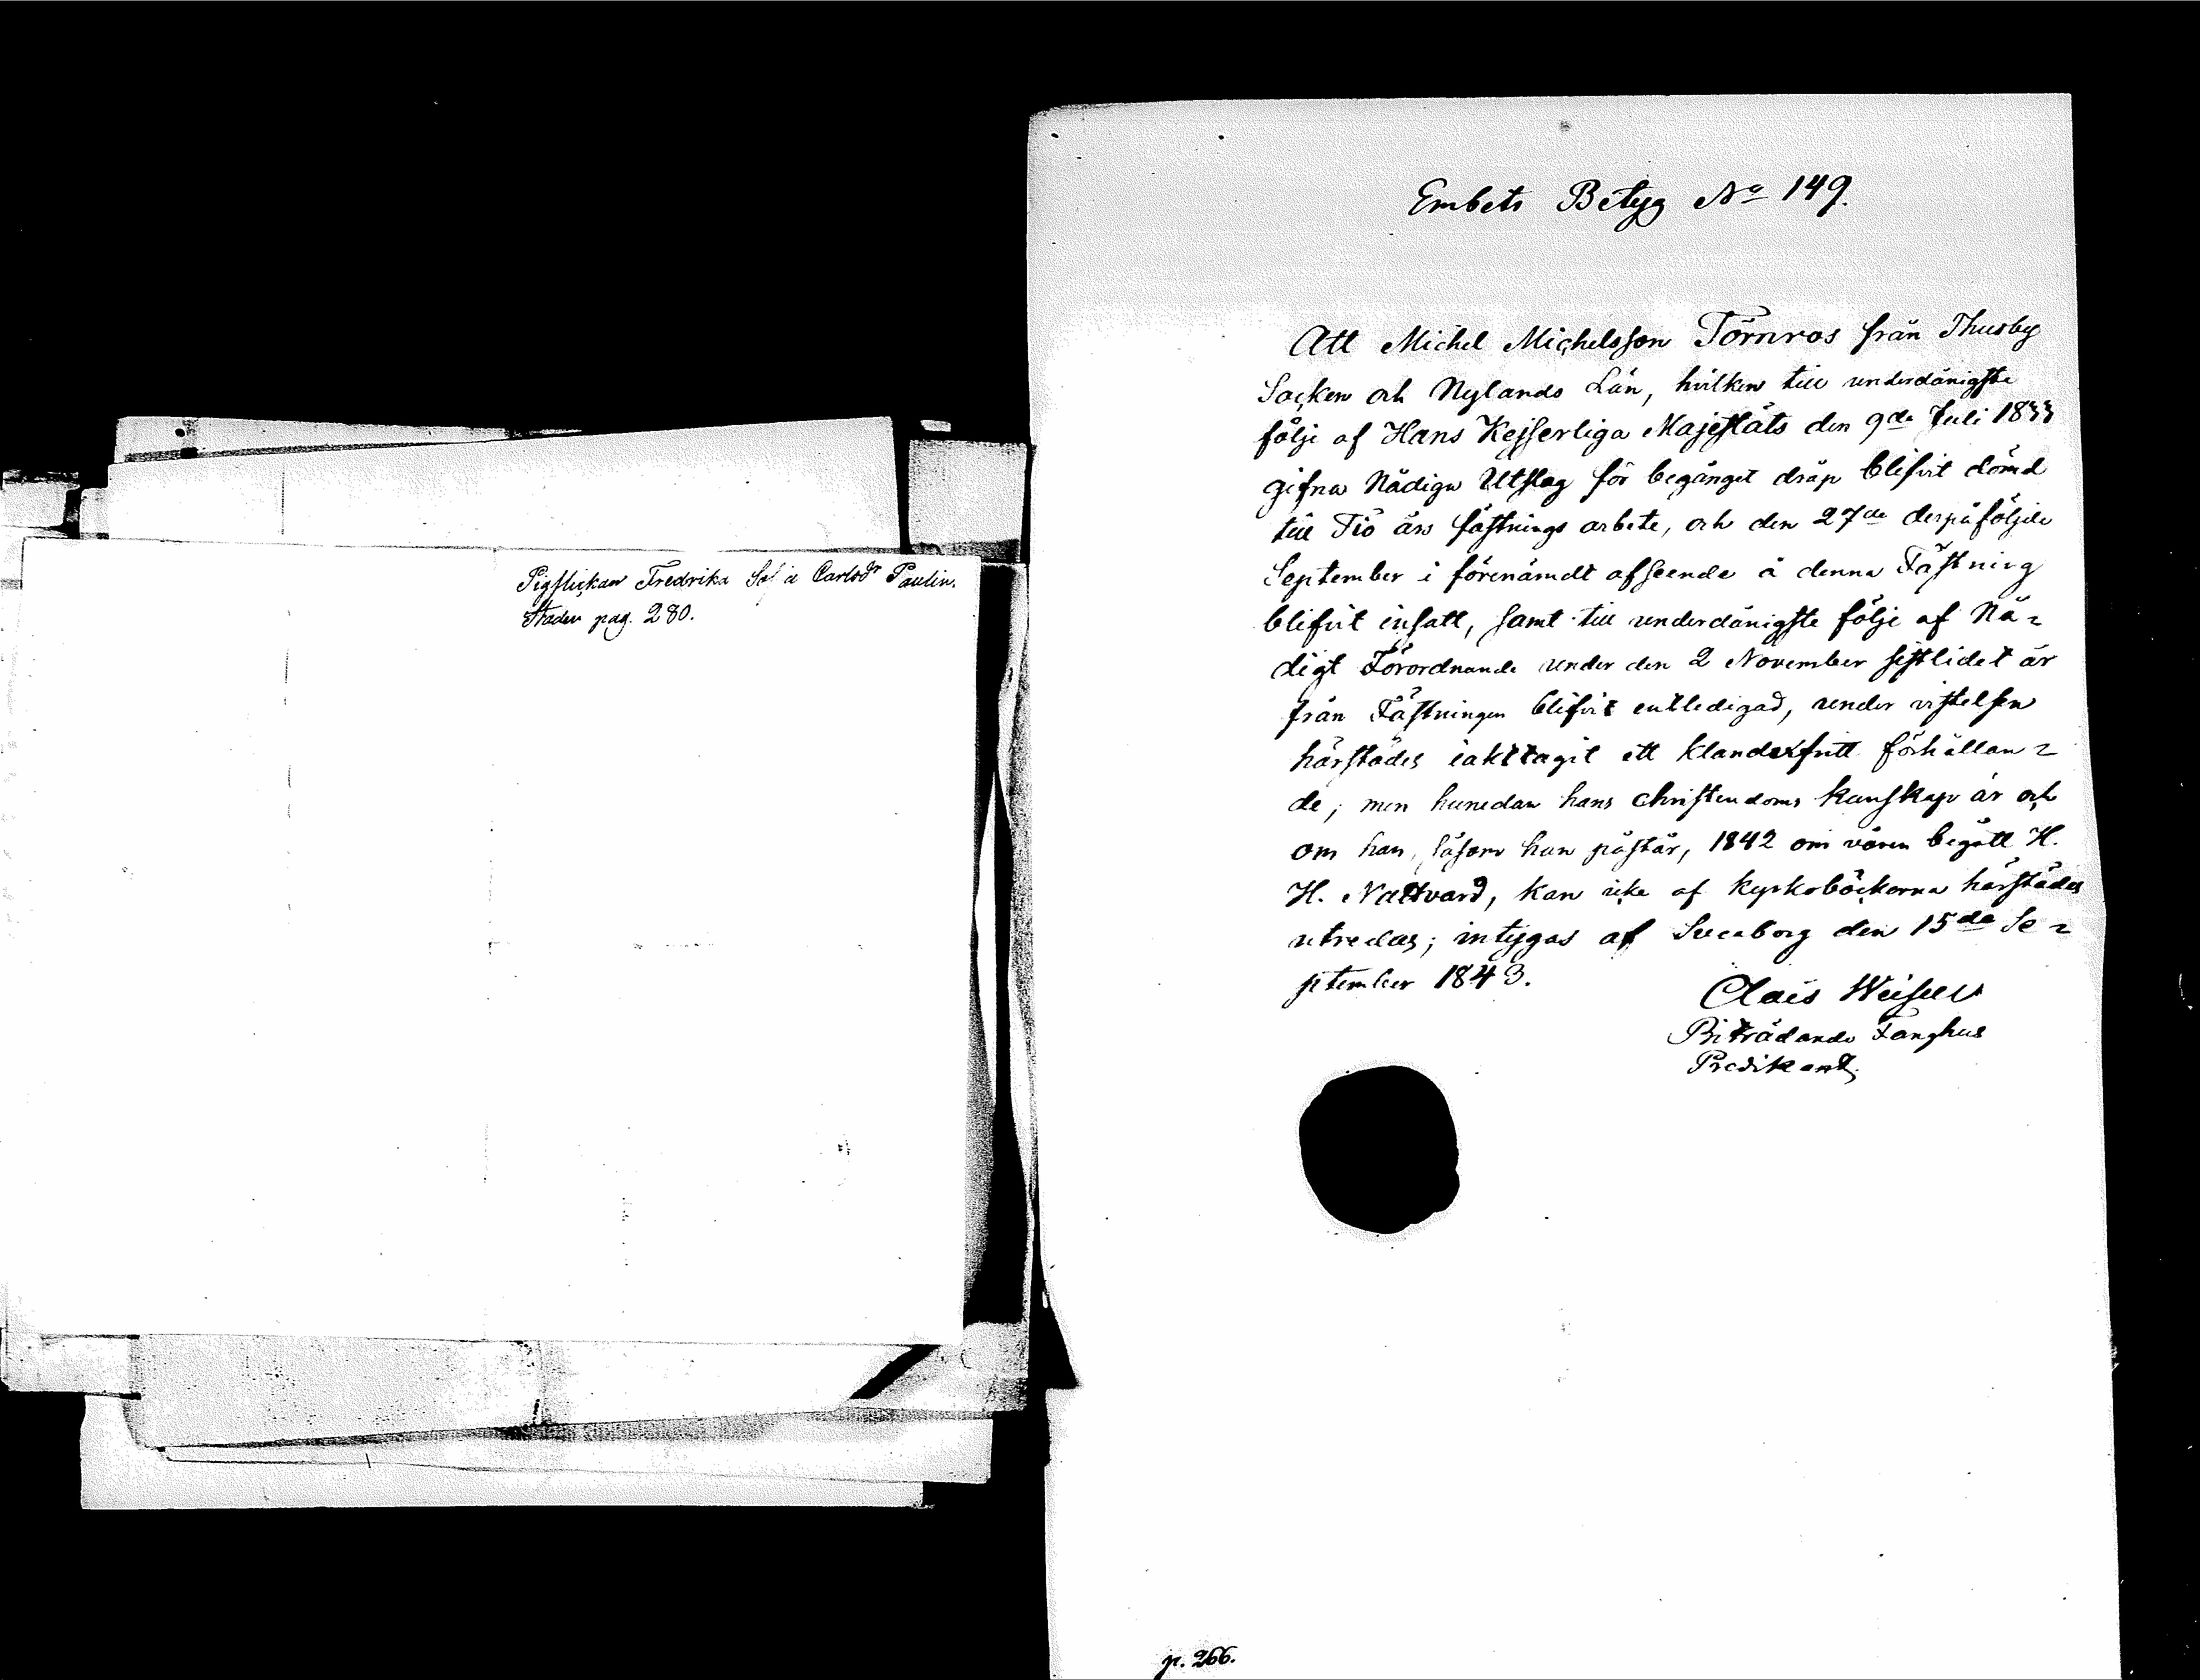 Pigflickan Fredrika Sofia Carlsdr Paulin.
Staden pag. 280.
Embets Betyg No 149.
Att Michel Michelsson Törnros från Thusby
Socken och Nylands Län, hvilken till underdånigste
följe af Hans Kejserliga Majestäts den 9de Juli 1833
gifna Nådiga Utslag för begånget dråp blifvit dömd
till Tio års fästnings arbete, och den 27de derpåföljde
September i förenämdt afseende å denna Fästning
blifvit insatt, samt till underdånigste följe af Nå-
digt Förordnande under den 2 November sistlidet år
från Fästningen blifvit entledigad, under vistelsen
härstädes iakttagit ett klanderfritt förhållan-
de; men hunedan hans christendoms kunskap är och
om han, såsom han påstår, 1842 om våren begått H.
H. Nattvard, kan icke af kyrkoböckerna härstädes
utredas; intygas af Sveaborg den 15de Se-
ptember 1843.
Clais
Biträdande Fånghus
Predikant.
p. 266.